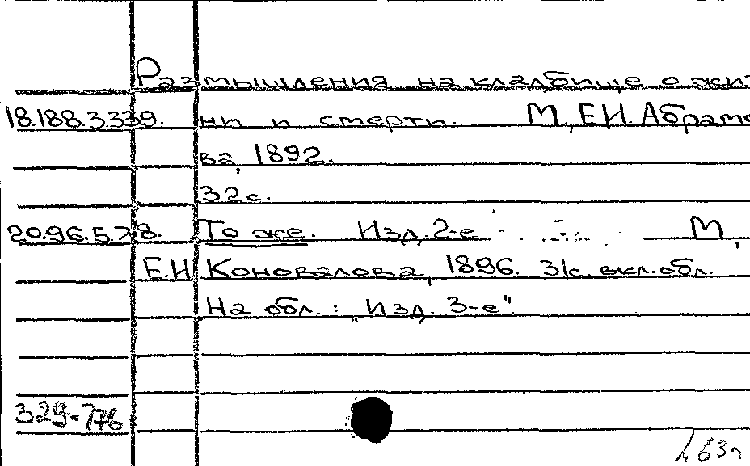 Размышления на кладбище о жиз
18.188.3.339. ни и смерти. М, Е.И. Абрамо
ва, 1892.
32 с.
20.96.5.78. То же. Изд. 2-е М,
Е.И Коновалова, 1896. 31с. вкл. обл.
На обл.: „Изд. 3-е".
329-776